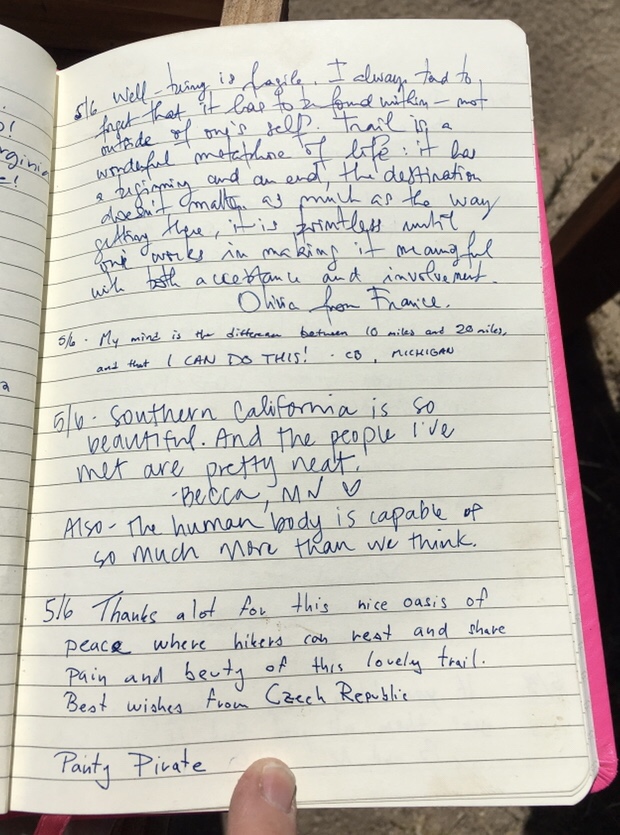 o!
rginia
e!
a
5/6 Well-being is fragile. I always tend to
forget that it has to be found within — not
outside of one's self. Trail is a
wonderful metaphore of life: it has
a beginning and an end, the destination
doesn't matter as much as the way
getting there, it is pointless until
one works in making it meaningful
with both acceptance and involvement.
Olivia from France.
5/6 · My mind is the difference between 10 miles and 20 miles,
and that I CAN DO THIS! · CB, MICHIGAN
5/6 · Southern California is so
beautiful. And the people I've
met are pretty neat.
-Becca, MN ♡
Also - The human body is capable of
so much more than we think.
5/6 Thanks alot for this nice oasis of
peace where hikers can rest and share
pain and beuty of this lovely trail.
Best wishes from Czech Republic
Panty Pirate